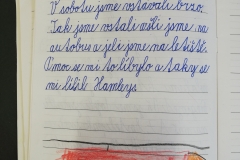 V sobotu jsme vstávali brzo.
Jak jsme vstali měli jsme na
autobus a jeli jsme na letiště.
Omoc se mi to líbylo a taky se
mi líbil Hamleys